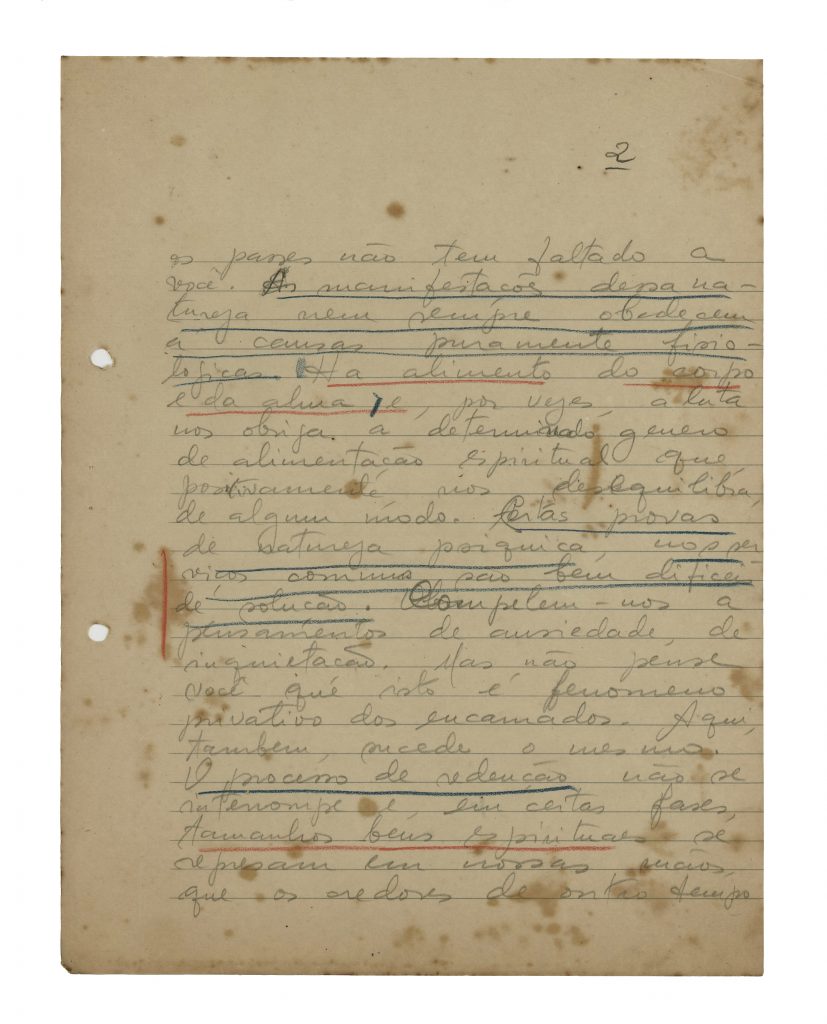 2
os passes não tem faltado a
você. As manifestacões dessa na-
tureza nem sempre obedecem
á causas puramente fisio-
logicas. Ha alimento do corpo
e da alma, e, por vezes, a luta
nos obriga a determinado genero
de alimentação espiritual que
positivamente nos desequilibra,
de algum modo. Certas provas
de natureza psiquica, nos ser
viços communs são bem dificeis
de solucão. Compelem-nos a
pensamentos de ansiedade, de
inquietacão. Mas não pense
você que isto é fenomeno
privativo dos encarnados. Aqui,
tambem, sucede o mesmo.
O processo de redenção, não se
interrompe e em certas fases,
tamanhos bens espirituaes se
represam em nossas mãos,
que os credores de outro tempo